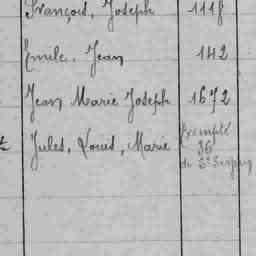 François, Joseph 1118
Emile, Jean 142
Jean Marie Joseph 1672
Jules, Louis, Marie Exempté
36
de